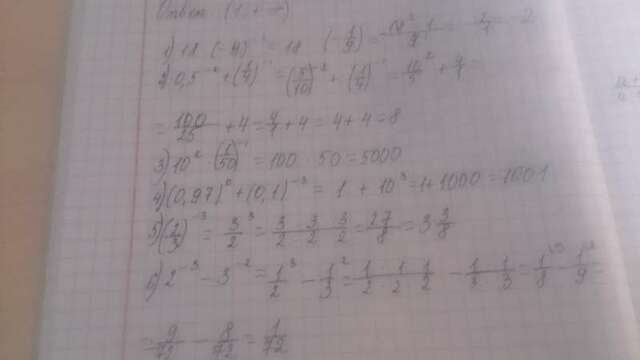 Ответ: (1, + ∞)
1) 18 · (-9)⁻¹ = 18 · (-1/9) = -18² · 1/9 = -2/1 = -2
2) 0,5⁻² + (1/4)⁻¹ = (5/10)⁻² + (1/4)⁻¹ = 10²/5 + 4/1 =
= 100/25 + 4 = 4/1 + 4 = 4 + 4 = 8
3) 10² · (1/50)⁻¹ = 100 · 50 = 5000
4) (0,97)⁰ + (0,1)⁻³ = 1 + 10³ = 1 + 1000 = 1001
5) (2/3)⁻³ = 3/2³ = 3/2 · 3/2 · 3/2 = 27/8 = 3 3/8
6) 2⁻³ - 3⁻² = 1/2³ - 1/3² = 1/2 · 1/2 · 1/2 - 1/3 · 1/3 = 1/8 - 1/9 =
= 9/72 - 8/72 = 1/72